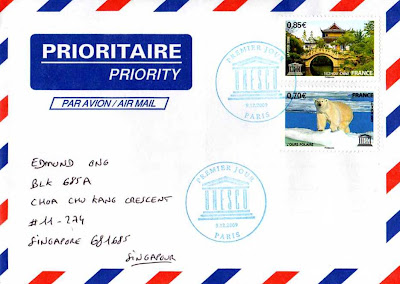 PRIORITAIRE
PRIORITY
PAR AVION / AIR MAIL
PREMIER JOUR
UNESCO
PARIS
0,85€
FRANCE
0,70€
L'OURS POLAIRE
FRANCE
EDMUND ONG
BLK 685A
CHOA CHU KANG CRESCENT
#11-274
SINGAPORE 681685
SINGAPOUR
PREMIER JOUR
UNESCO
PARIS